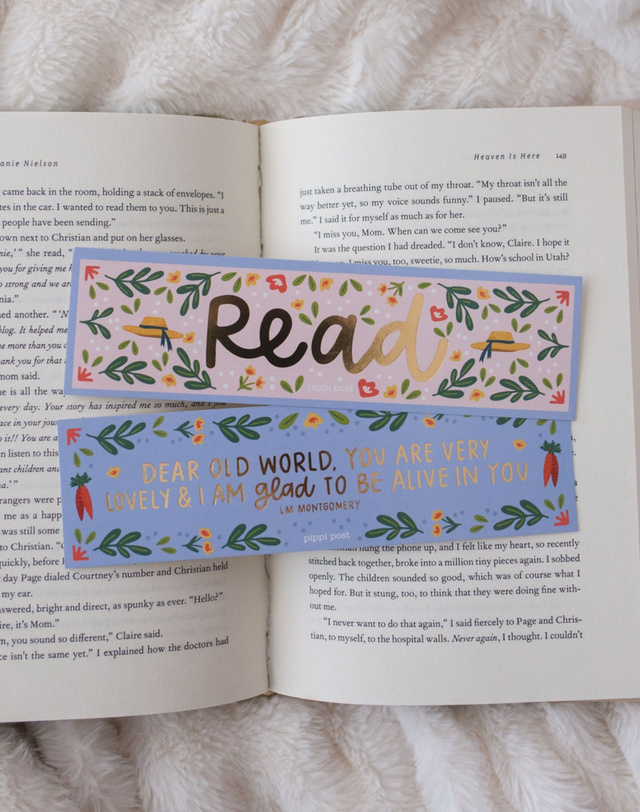 anie Nielson
came back in the room, holding a stack of envelopes. "I
tes in the car. I wanted to read them to you. This is just a
people have been sending."
own next to Christian and put on her glasses.
she read,
you for giving me
o strong and we ar
nia."
ned another. "'N
blog. It helped me
e more than you c
ank you for that
mom said.
e is all the wa
every day. Your story has inspired me so much, and I
ace in your jou
o it!! You are a
en listen to this
ant children and
a.'"
rangers were p
me as a happ
was still some
to Christian. "O
quickly, before I
day Page dialed Courtney's number and Christian held
my ear.
nswered, bright and direct, as spunky as ever. "Hello?"
ire, it's Mom."
m, you sound so different," Claire said.
ce isn't the same yet." I explained how the doctors had
Heaven Is Here 149
just taken a breathing tube out of my throat. "My throat isn't all the
way better yet, so my voice sounds funny." I paused. "But it's still
me." I said it for myself as much as for her.
"I miss you, Mom. When can we come see you?"
It was the question I had dreaded. "I don't know, Claire. I hope it
I miss you, too, sweetie, so much. How's school in Utah?
Read
pippi post
DEAR OLD WORLD, YOU ARE VERY
LOVELY & I AM glad TO BE ALIVE IN YOU
LM MONTGOMERY
pippi post
hung the phone up, and I felt like my heart, so recently
stitched back together, broke into a million tiny pieces again. I sobbed
openly. The children sounded so good, which was of course what I
hoped for. But it stung, too, to think that they were doing fine with-
out me.
"I never want to do that again," I said fiercely to Page and Chris-
tian, to myself, to the hospital walls. Never again, I thought. I couldn't